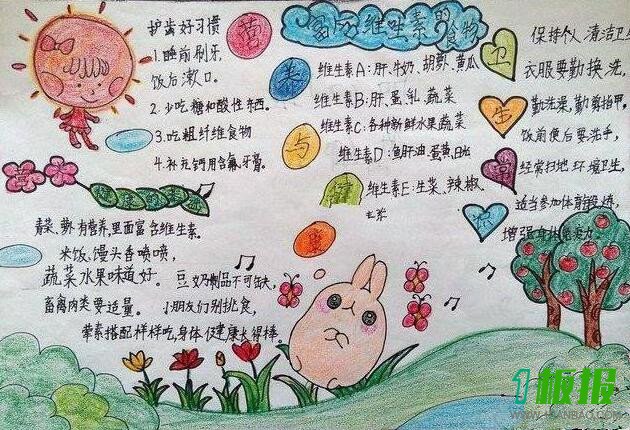 护齿好习惯
1.睡前刷牙,
饭后漱口。
2.少吃糖和酸性东西。
3.吃粗纤维食物
4.补充钙用含氟牙膏。
营
养
与
健
康
富成维生素的食物
维生素A:肝、牛奶、胡萝、黄瓜
维生素B:肝、蛋、乳、蔬菜
维生素C:各种新鲜水果蔬菜
维生素D:鱼肝油、蛋黄、日光
维生素E:生菜、辣椒、
卫
生
常
识
保持个人清洁卫生
衣服要勤换洗,
勤洗澡,勤剪指甲。
饭前便后要洗手,
经常扫地环境卫生,
适当参加体育锻炼,
增强身体免疫力
营
健康
青菜、萝卜有营养,里面富含维生素。
米饭、馒头香喷喷,
蔬菜水果味道好。豆奶制品不可缺,
畜禽肉类要适量。小朋友们别挑食,
荤素搭配样样吃,身体健康长得棒。
1板报
WWW.1BANBAO.COM